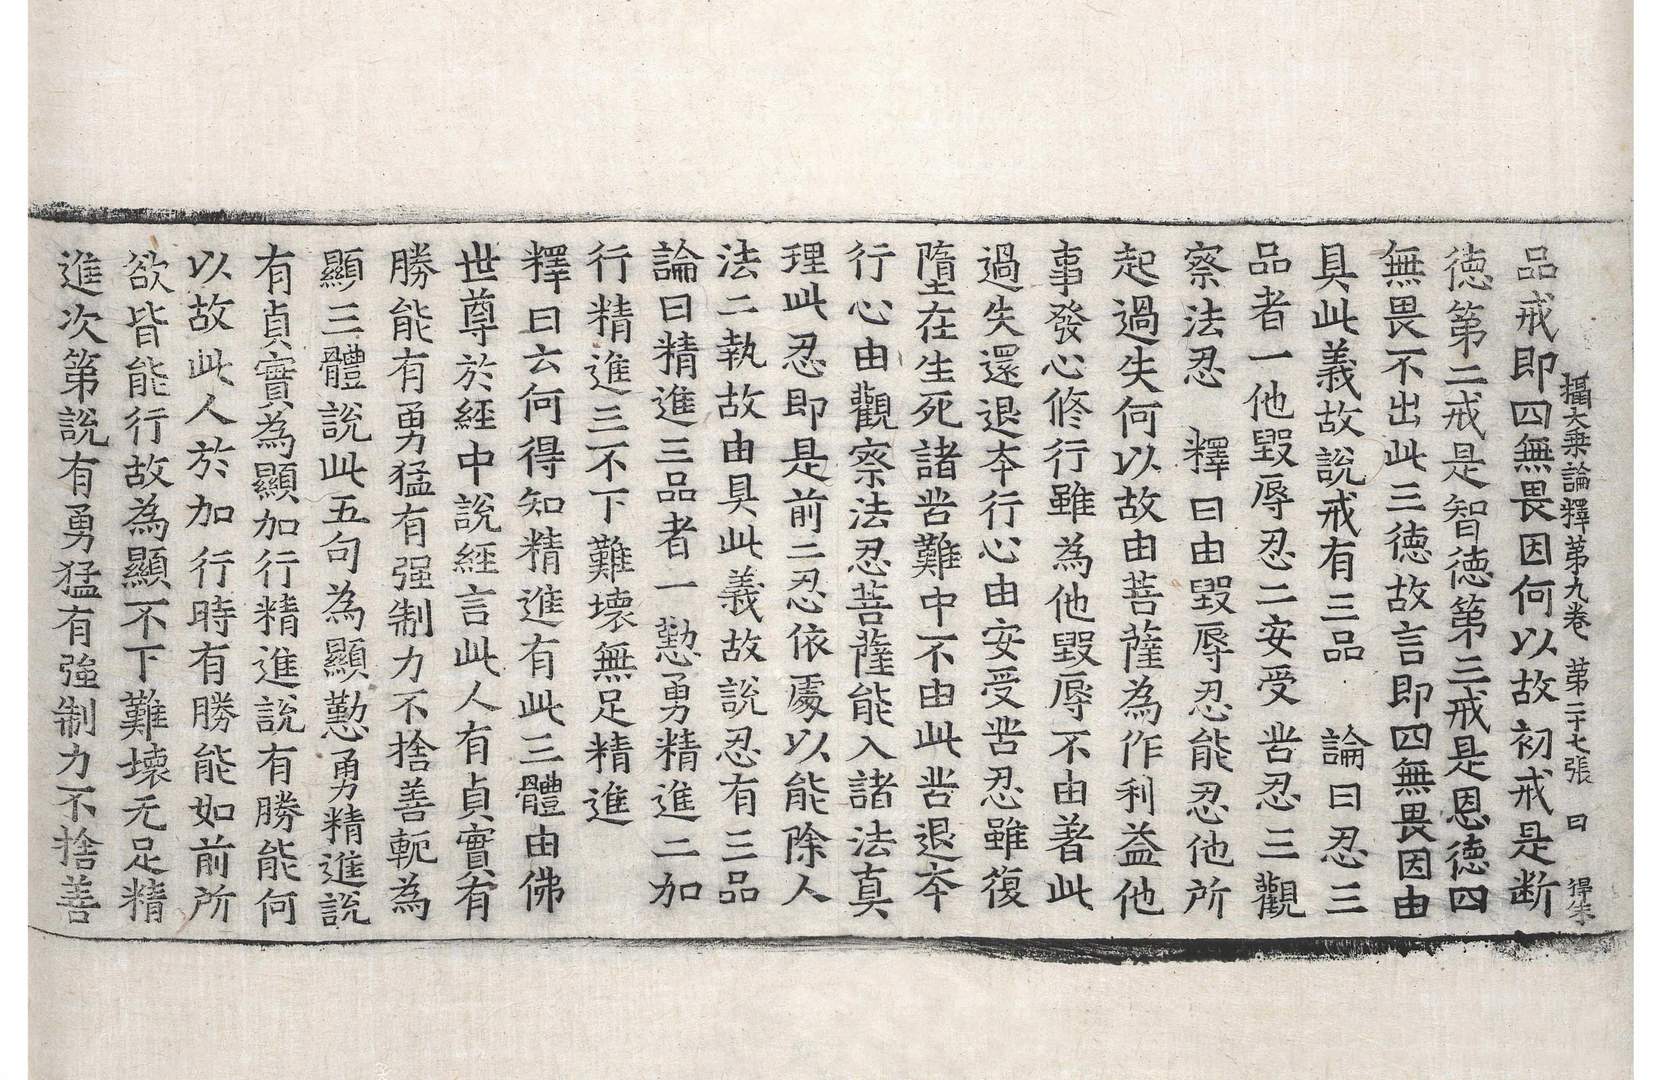 攝大乗論釋第九卷 第二十七張 曰 得朱
品戒即四無畏因何以故初戒是断
徳第二戒是智徳第三戒是恩徳四
無畏不出此三徳故言即四無畏因由
具此義故說戒有三品 論曰忍三
品者一他毀辱忍二安受苦忍三觀
察法忍 釋曰由毀辱忍能忍他所
起過失何以故由菩薩為作利益他
事發心修行雖為他毀辱不由著此
過失還退夲行心由安受苦忍雖復
墮在生死諸苦難中不由此苦退夲
行心由觀察法忍菩薩能入諸法真
理此忍即是前二忍依處以能除人
法二執故由具此義故說忍有三品
論曰精進三品者一懃勇精進二加
行精進三不下難壞無足精進
釋曰云何得知精進有此三體由佛
世尊於經中說經言此人有貞實有
勝能有勇猛有强制力不捨善軛為
顯三體說此五句為顯懃勇精進說
有貞實為顯加行精進說有勝能何
以故此人於加行時有勝能如前所
欲皆能行故為顯不下難壞无足精
進次第說有勇猛有強制力不捨善